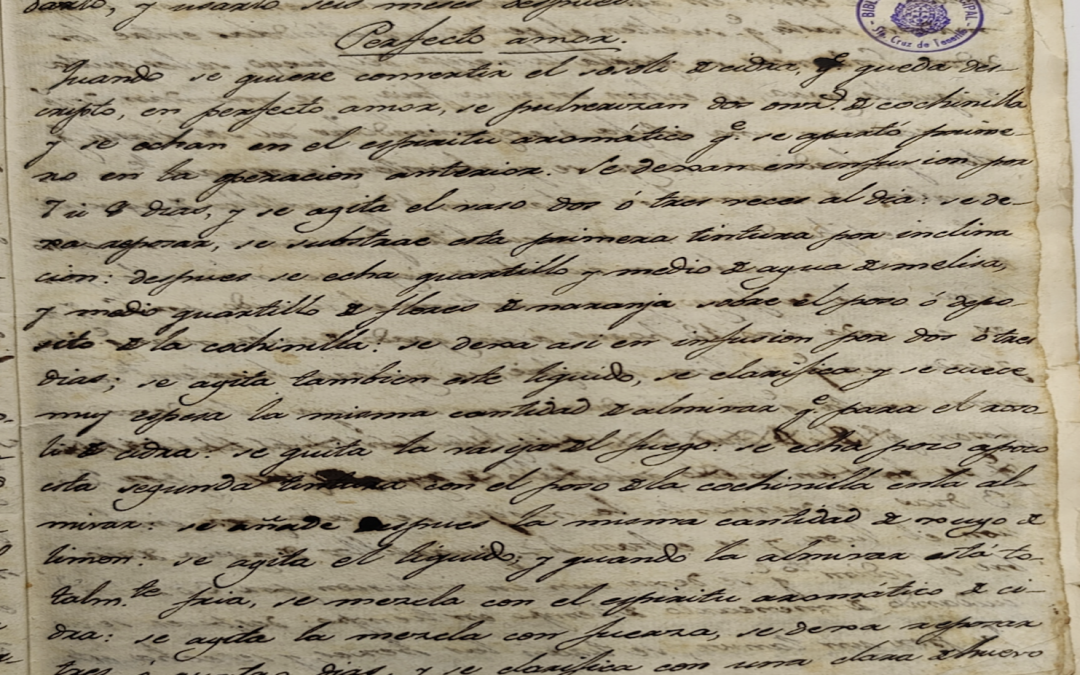 darlo, y usarlo seis meses despues.
BIBL IPAL
Sta. Cruz de Tenerife
Perfecto amor.
Quando se quiere convertir el rosoli de cidra, q.e queda des-
cripto, en perfecto amor, se pulverizan dos onz.s de cochinilla
y se echan en el espiritu aromático q.e se apartó prime-
ro en la operacion anterior. Se dexan en infusion por
7 ú 8 dias, y se agita el vaso dos ó tres veces al dia: se de-
xa reposar, se substrae esta primera tintura por inclina
cion: despues se echa quartillo y medio de agua de melisa,
y medio quartillo de flores de naranja sobre el poso ó depo-
sito de la cochinilla: se dexa asi en infusion por dos ó tres
dias; se agita tambien este liquido, se clarifica y se cuece
muy espesa la misma cantidad de almirar q.e para el roso
li de cidra: se quita la vasija del fuego: se echa poco apoco
esta segunda tintura con el poso de la cochinilla enla al-
mirar: se añade despues la misma cantidad de zugo de
limon: se agita el liquido; y quando la almirar está to-
talm.te fria, se mezcla con el espiritu aromático de ci-
dra: se agita la mezcla con fuerza, se dexa reposar
tres ó quatro dias, y se clarifica con una clara de huevo